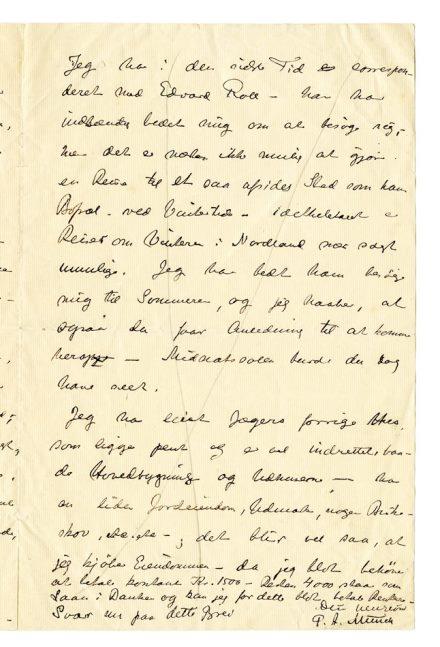 Jeg har i den sidste Tid correspon-
deret med Edvard Roll – han har
indstændig bedet mig om at besøge sig,
men det er næsten ikke mulig at gjøre
en Reise til et saa afsides Sted som hans
ved Vinterstid –
Reiser om Vinteren i Nordland nær sagt
umulige. Jeg har bedt ham besøge
mig til Sommeren, og jeg haaber, at
ogsaa du faar Anledning til at komme
herop – Midnatssolen burde du dog
have seet.
Jeg har leiet Jægers forrige Hus,
som ligger pent og er vel indrettet, baa-
de Hovedbygning og Udhusene – har
en liden Jordeiendom, Udmark, noget Birke-
skov, – ; det blir vel saa, at
jeg kjøber Eiendommen – da jeg blot behøver
at betale kontant Kr. 1500 – Resten 4000 staa som
Laan i Banken og kan jeg for dette blot betale Renter
Svar mig paa dette Brev
Din
P. A. Munch